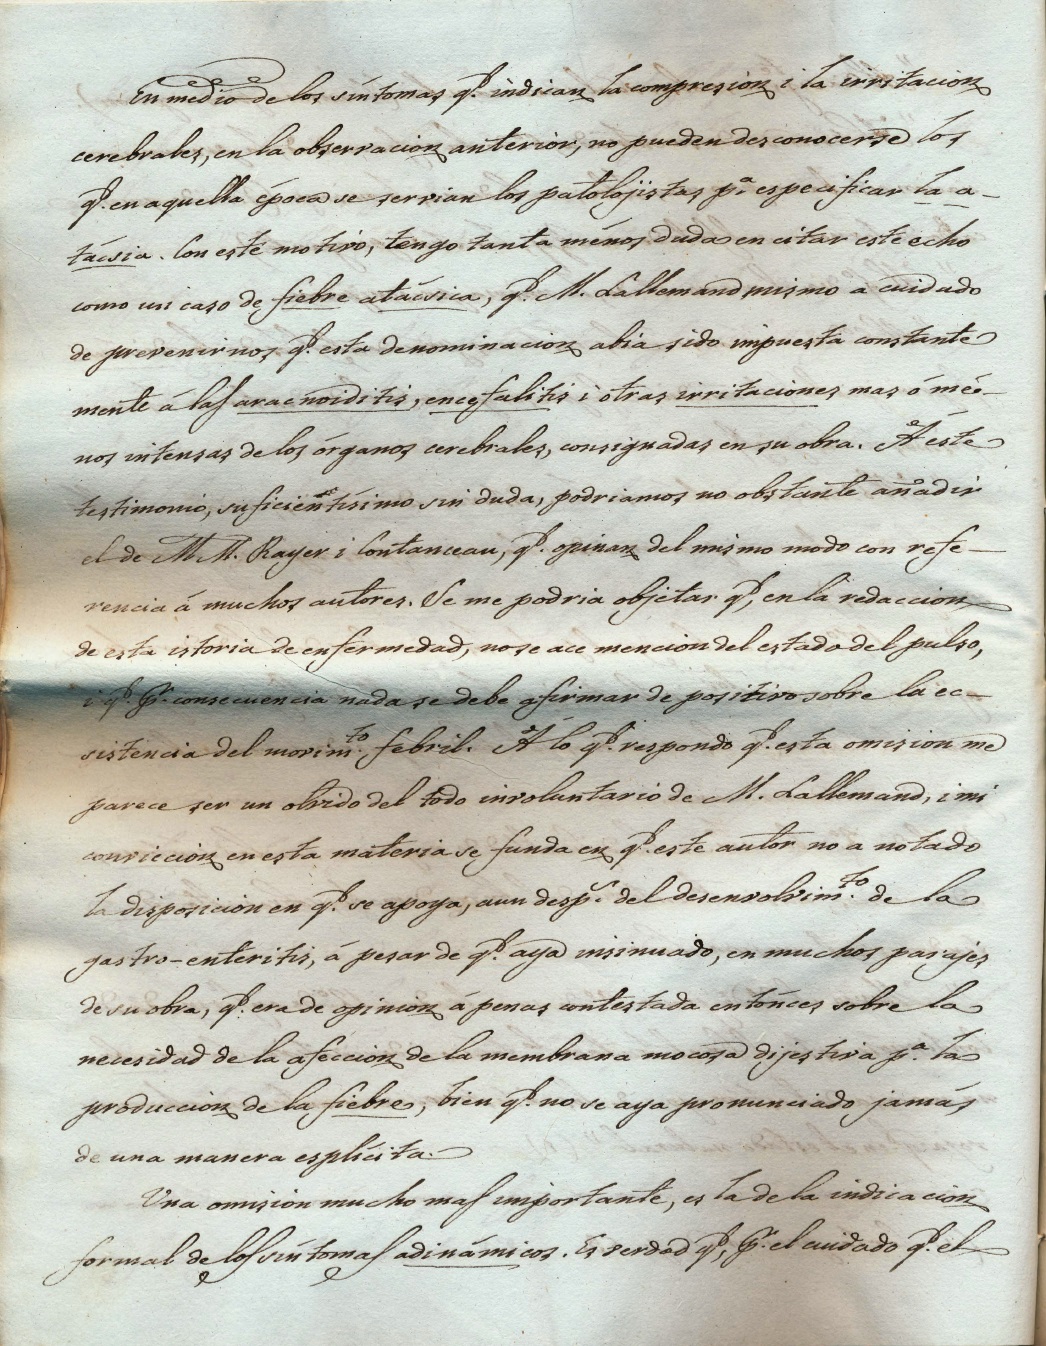 En medio de los síntomas q.e indican la compresion i la irritacion
cerebrales, en la observacion anterior, no pueden desconocerse los
q.e en aquella época se servian los patolojistas p.a especificar la a-
tácsia. Con este motivo, tengo tanta ménos duda en citar este echo
como un caso de fiebre atácsica, q.e M. Lallemand mismo a cuidado
de prevenirnos q.e esta denominacion abia sido impuesta constante
mente á las aracnoiditis, encefalitis i otras irritaciones mas ó mé-
nos intensas de los órganos cerebrales, consignadas en su obra. A este
testimonio, suficientísimo sin duda, podriamos no obstante añadir
el de M.M. Rayer i Coutanceau, q.e opinan del mismo modo con refe-
rencia á muchos autores. Se me podria objetar q.e, en la redaccion
de esta istoria de enfermedad, no se ace mencion del estado del pulso,
i q.e p.r consecuencia nada se debe afirmar de positivo sobre la ec-
sistencia del movim.to febril. A lo q.e respondo q.e esta omision me
parece ser un olvido del todo involuntario de M. Lallemand, i mi
conviccion en esta materia se funda en q.e este autor no a notado
la disposicion en q.e se apoya, aun desp.s del desenvolvim.to de la
gastro-enteritis, á pesar de q.e aya insinuado, en muchos parajes
de su obra, q.e era de opinion á penas contestada entónces sobre la
necesidad de la afeccion de la membrana mocosa dijestiva p.a la
produccion de la fiebre, bien q.e no se aya pronunciado jamás
de una manera esplícita.
Una omision mucho mas importante, es la de la indicacion
formal de los síntomas adinámicos. Es verdad q.e, p.r el cuidado q.e el